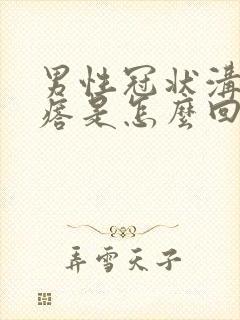 男性冠狀溝
痞是怎麼回
弄雪天子